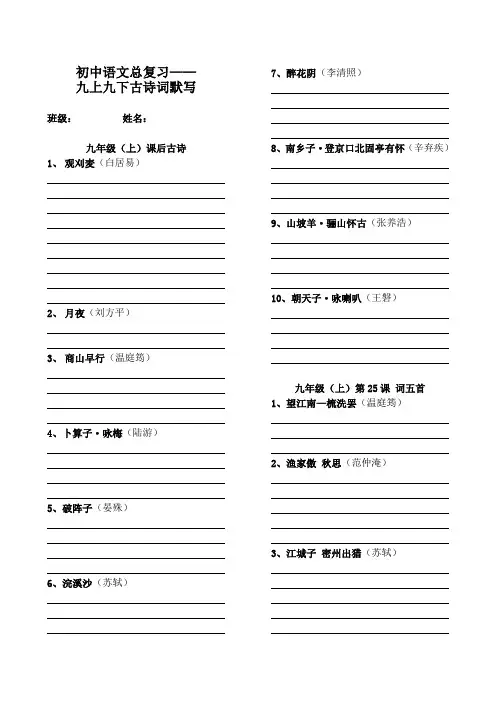 初中语文总复习——
九上九下古诗词默写
班级： 姓名：
九年级（上）课后古诗
1、 观刈麦（白居易）
2、 月夜（刘方平）
3、 商山早行（温庭筠）
4、卜算子·咏梅（陆游）
5、破阵子（晏殊）
6、浣溪沙（苏轼）
7、醉花阴（李清照）
8、南乡子·登京口北固亭有怀（辛弃疾）
9、山坡羊·骊山怀古（张养浩）
10、朝天子·咏喇叭（王磐）
九年级（上）第25课 词五首
1、望江南—梳洗罢（温庭筠）
2、渔家傲 秋思（范仲淹）
3、江城子 密州出猎（苏轼）